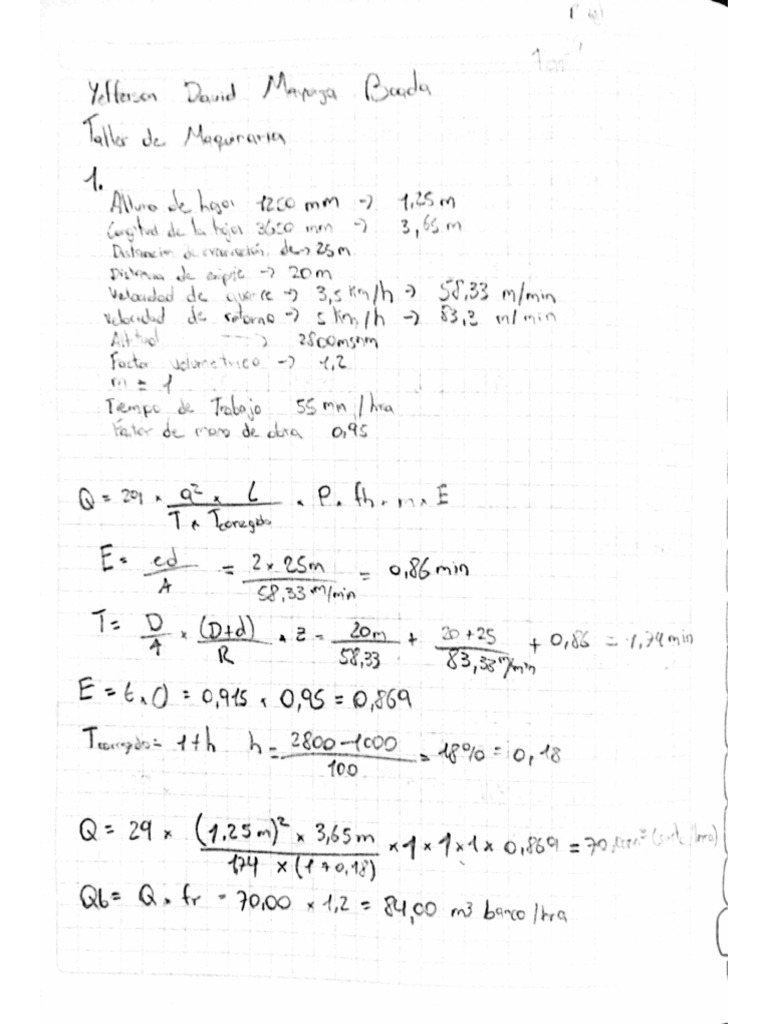 Yefferson David Mayorga Boada
Taller de Maquinaria
1.
Altura de hoja 1250 mm -> 1,25 m
Longitud de la hoja 3650 mm -> 3,65 m
Distancia de excavación de -> 25m
Distancia de -> 20m
Velocidad de -> 3,5 Km/h -> 58,33 m/min
Velocidad de retorno -> 5 Km/h -> 83,3 m/min
Altitud -> 2800msnm
Factor volumetrico -> 1,2
m = 1
Tiempo de Trabajo 55 mn/hra
Factor de mano de obra 0,95
Q = 29 × a² × L / T × Tcorregido × P × fh × m × E
E = ed / A = 2 × 25m / 58,33 m/min = 0,86 min
T = D / A × (D+d) / R × z = 20m / 58,33 + 20+25 / 83,33 m/min + 0,86 = 1,74 min
E = t × O = 0,915 × 0,95 = 0,869
Tcorregido = 1+h h = 2800-1000 / 100 = 18% = 0,18
Q = 29 × (1.25m)² × 3,65m / 1,74 × (1+0,18) × 1 × 1 × 1 × 0,869 = 70,00m³
Qb = Q × fv = 70,00 × 1,2 = 84,00 m3 banco/hra